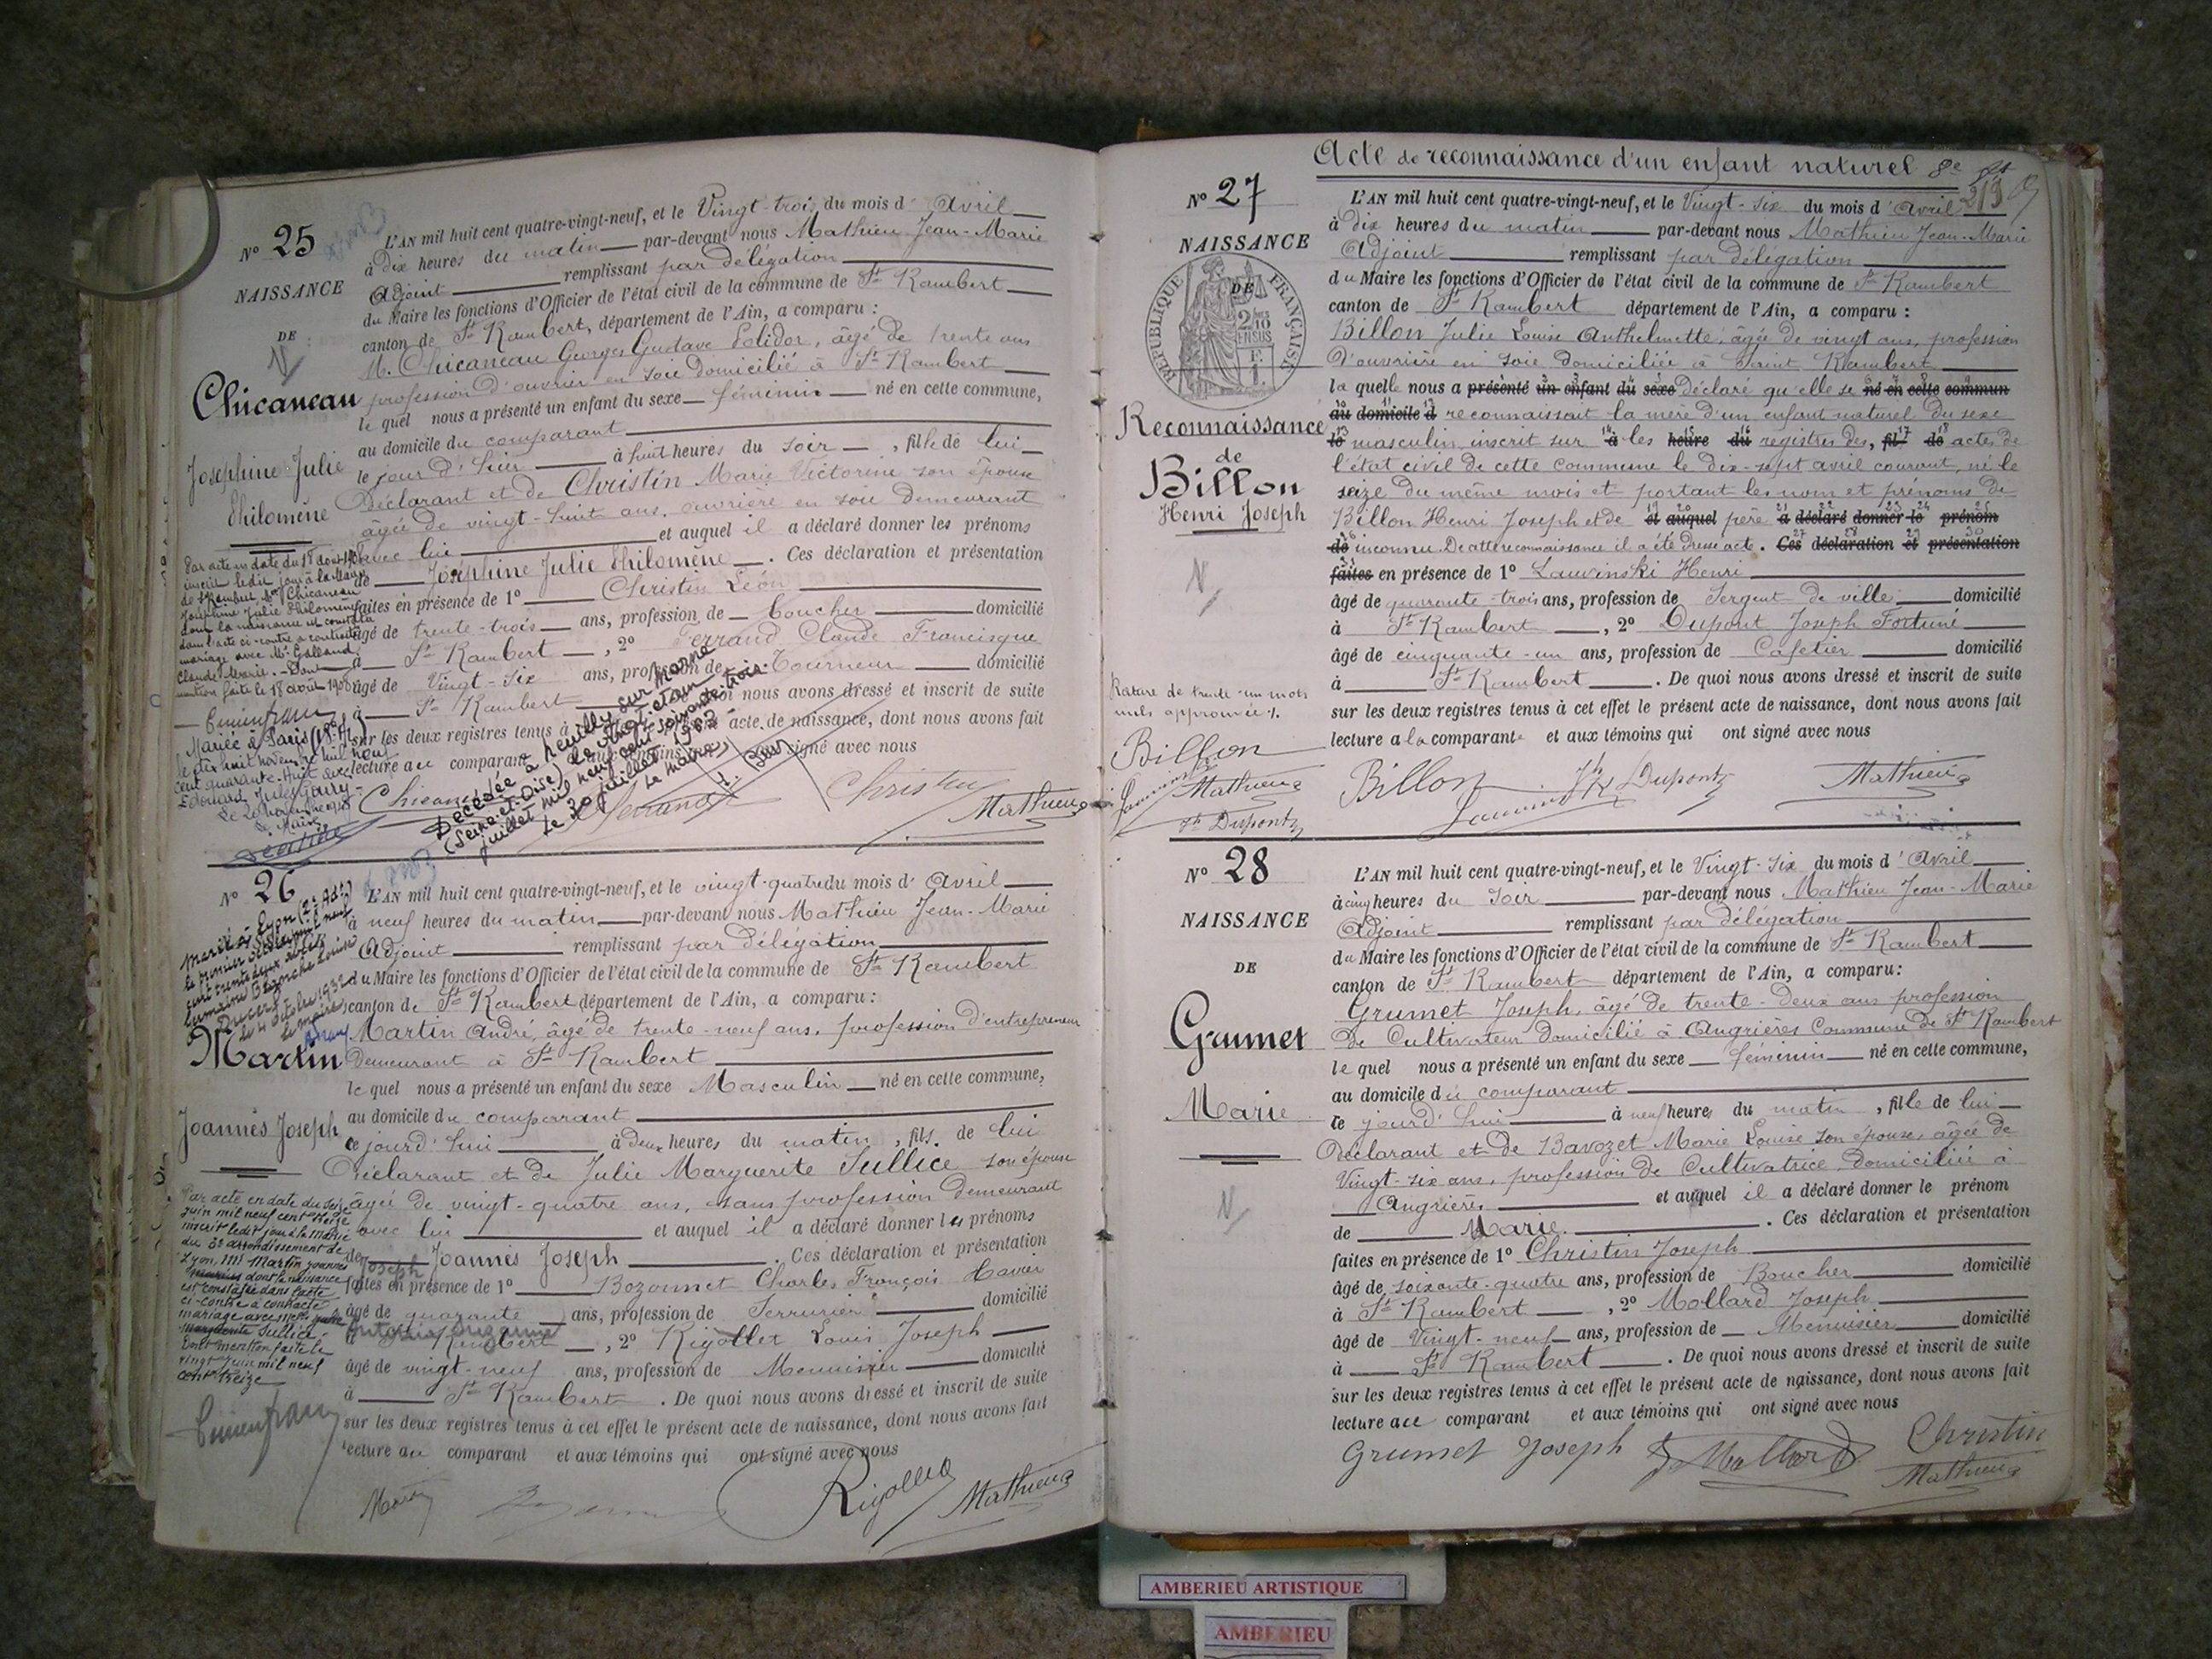 N° 25
NAISSANCE
DE
Chicaneau
Josephine Julie
Philomène
L'AN mil huit cent quatre-vingt-neuf, et le Vingt-trois du mois d' Avril
à dix heures du matin par-devant nous Mathieu Jean-Marie
Adjoint remplissant par délégation
du Maire les fonctions d'Officier de l'état civil de la commune de St Rambert
canton de St Rambert, département de l'Ain, a comparu :
M. Chicaneau Georges Gustave Polidor, âgé de trente ans
profession d'ouvrier en soie domicilié à St Rambert
lequel nous a présenté un enfant du sexe féminin né en cette commune,
au domicile du comparant
le jour d'hier à huit heures du soir, fille de lui
Déclarant et de Christin Marie Victorine son épouse
âgée de vingt-huit ans, ouvrière en soie demeurant
avec lui et auquel il a déclaré donner les prénoms
de Joséphine Julie Philomène. Ces déclaration et présentation
faites en présence de 1° Christin Léon
âgé de trente-trois ans, profession de boucher domicilié
à St Rambert, 2° Ferrand Claude Francisque
âgé de Vingt-six ans, profession de Tourneur domicilié
à St Rambert. De quoi nous avons dressé et inscrit de suite
sur les deux registres tenus à cet effet le présent acte de naissance, dont nous avons fait
lecture au comparant et aux témoins qui ont signé avec nous
Par acte en date du 18 août 1908
inscrit ledit jour à la Mairie
de St Rambert, Mlle Chicaneau
Joséphine Julie Philomène
dont la naissance est constatée
dans l'acte ci-contre a contracté
mariage avec Mr Galland
Claude Marie. - Dont
mention faite le 18 août 1908
Mariée à Paris (18e)
le dix huit novembre mil neuf
cent quarante-huit avec
Edouard Jules Gaury
Le 20 novembre 1948
Le Maire
Décédée à Neuilly sur Marne
(Seine-et-Oise) le vingt et un
juillet mil neuf cent soixante-trois.
Le 30 juillet 1963
Le Maire,
Chicaneau
Ferrand
Christin
Mathieu
N° 26
Martin
Joannès Joseph
L'AN mil huit cent quatre-vingt-neuf, et le vingt-quatre du mois d' Avril
à neuf heures du matin par-devant nous Mathieu Jean-Marie
Adjoint remplissant par délégation
du Maire les fonctions d'Officier de l'état civil de la commune de St Rambert
canton de St Rambert département de l'Ain, a comparu :
Martin André, âgé de trente-neuf ans, profession d'entrepreneur
Demeurant à St Rambert
lequel nous a présenté un enfant du sexe Masculin né en cette commune,
au domicile du comparant
ce jourd'hui à deux heures du matin, fils de lui
Déclarant et de Julie Marguerite Sullice son épouse
âgée de vingt-quatre ans, sans profession demeurant
avec lui et auquel il a déclaré donner les prénoms
de Joannès Joseph. Ces déclaration et présentation
faites en présence de 1° Bozonnet Charles François Xavier
âgé de quarante ans, profession de Serrurier domicilié
à St Rambert, 2° Rigollet Louis Joseph
âgé de vingt-neuf ans, profession de Menuisier domicilié
à St Rambert. De quoi nous avons dressé et inscrit de suite
sur les deux registres tenus à cet effet le présent acte de naissance, dont nous avons fait
lecture au comparant et aux témoins qui ont signé avec nous
Marié à Lyon (2e Ardt)
le premier octobre mil neuf
cent trente deux avec
Blanche Louise
Le 4 octobre 1932
Le maire,
Par acte en date du seize
juin mil neuf cent treize
inscrit ledit jour à la Mairie
du 3e arrondissement de
Lyon, Mr Martin Joannès
Joseph
dont la naissance
est constatée dans l'acte
ci-contre a contracté
mariage avec Melle
Antonia Suzanne
Marguerite Sullice.
Dont mention faite le
vingt juin mil neuf
cent treize
Martin
Rigollet
Mathieu
Acte de reconnaissance d'un enfant naturel
213
N° 27
NAISSANCE
DE
RÉPUBLIQUE FRANÇAISE
Reconnaissance
de
Billon
Henri Joseph
L'AN mil huit cent quatre-vingt-neuf, et le Vingt-six du mois d' Avril
à dix heures du matin par-devant nous Mathieu Jean-Marie
Adjoint remplissant par délégation
du Maire les fonctions d'Officier de l'état civil de la commune de St Rambert
canton de St Rambert département de l'Ain, a comparu :
Billon Julie Louise Anthelmette, âgée de vingt ans, profession
D'ouvrière en soie domiciliée à Saint Rambert
laquelle nous a présenté un enfant du sexe déclaré qu'elle se né en cette commun
au domicile d reconnaissait la mère d'un enfant naturel du sexe
le masculin inscrit sur à les heure du registres des, fil de actes de
l'état civil de cette commune le dix-sept avril courant, né le
seize du même mois et portant les nom et prénoms de
Billon Henri Joseph et de et auquel père a déclaré donner le prénom
de inconnu. De cette reconnaissance il a été dressé acte. Ces déclaration et présentation
faites en présence de 1° Lauvinski Henri
âgé de quarante-trois ans, profession de Sergent de ville domicilié
à St Rambert, 2° Dupont Joseph Fortuné
âgé de cinquante-un ans, profession de Cafetier domicilié
à St Rambert. De quoi nous avons dressé et inscrit de suite
sur les deux registres tenus à cet effet le présent acte de naissance, dont nous avons fait
lecture a la comparante et aux témoins qui ont signé avec nous
Rature de trente-un mots
nuls approuvée.
Billon
Mathieu
Jh Dupont
Billon
Jh Dupont
Mathieu
N° 28
NAISSANCE
DE
Grumet
Marie
L'AN mil huit cent quatre-vingt-neuf, et le Vingt-six du mois d' Avril
à cinq heures du soir par-devant nous Mathieu Jean-Marie
Adjoint remplissant par délégation
du Maire les fonctions d'Officier de l'état civil de la commune de St Rambert
canton de St Rambert département de l'Ain, a comparu :
Grumet Joseph, âgé de trente-deux ans profession
de Cultivateur domicilié à Angrières Commune de St Rambert
lequel nous a présenté un enfant du sexe féminin né en cette commune,
au domicile du comparant
ce jourd'hui à neuf heures du matin, fille de lui
Déclarant et de Bavozet Marie Louise son épouse, âgée de
Vingt-six ans, profession de Cultivatrice domiciliée à
Angrières et auquel il a déclaré donner le prénom
de Marie. Ces déclaration et présentation
faites en présence de 1° Christin Joseph
âgé de soixante-quatre ans, profession de Boucher domicilié
à St Rambert, 2° Mollard Joseph
âgé de Vingt-neuf ans, profession de Menuisier domicilié
à St Rambert. De quoi nous avons dressé et inscrit de suite
sur les deux registres tenus à cet effet le présent acte de naissance, dont nous avons fait
lecture au comparant et aux témoins qui ont signé avec nous
Grumet Joseph
J Mollard
Christin
Mathieu
AMBERIEU ARTISTIQUE
AMBERIEU